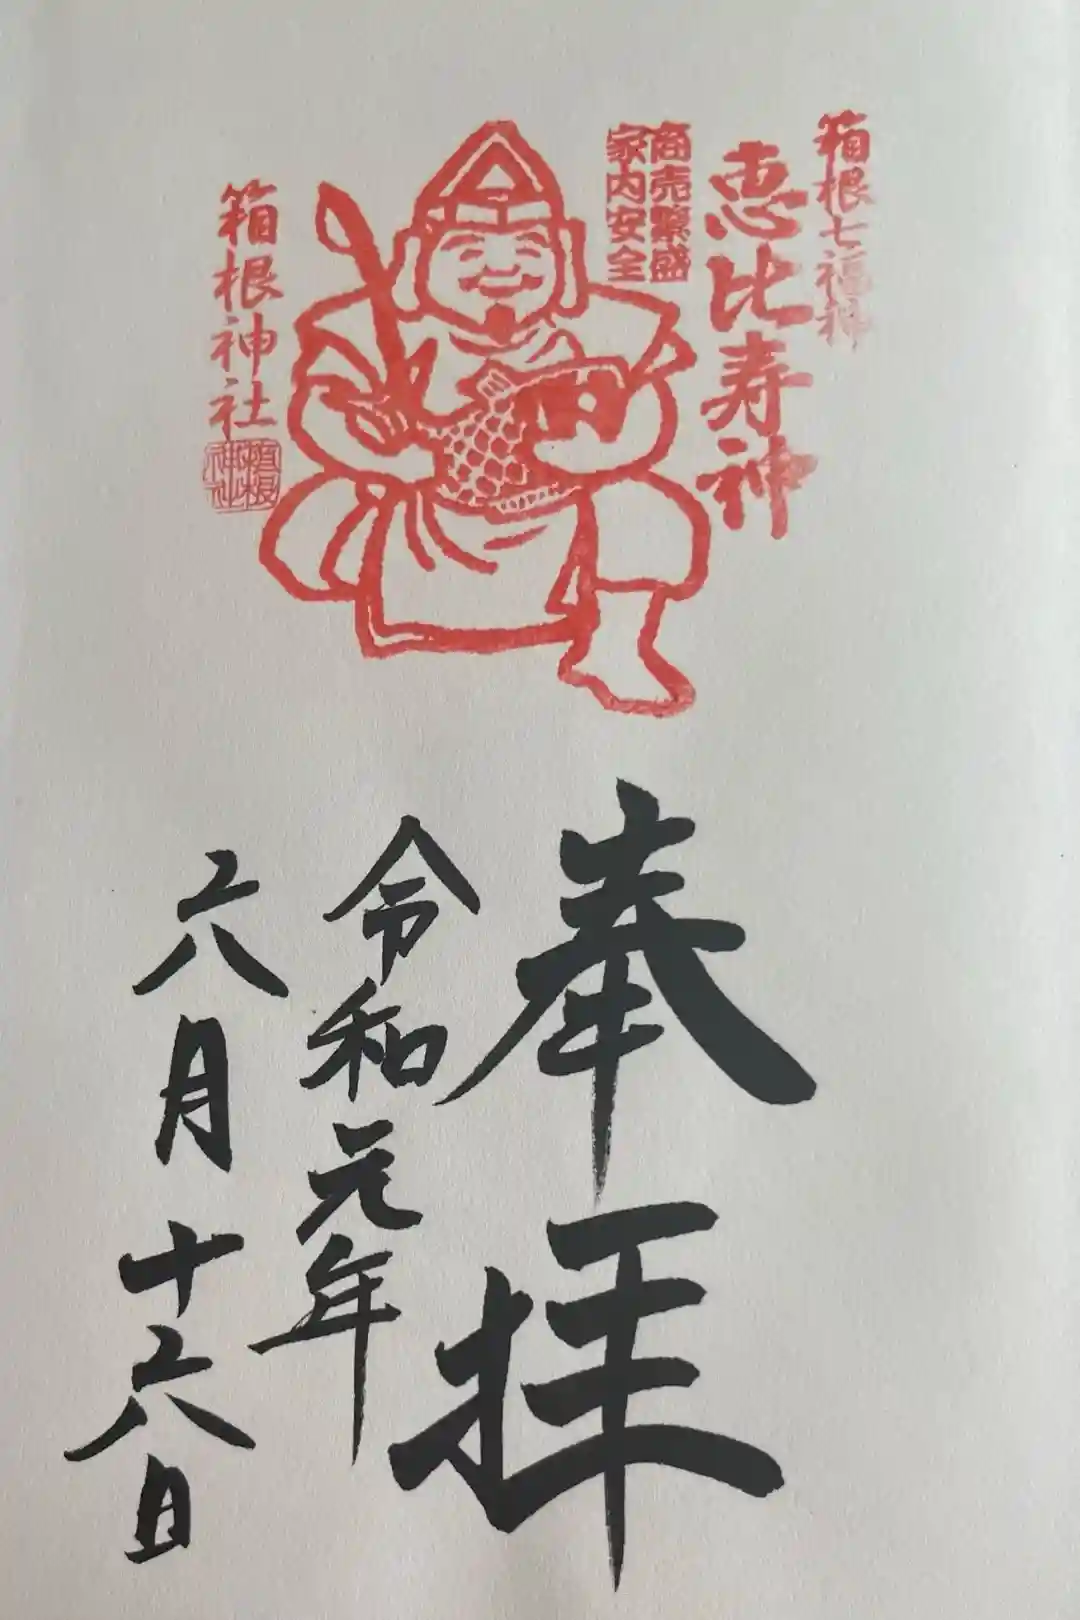 箱根七福神
恵比寿神
商売繁盛
家内安全
箱根神社
箱根
神社
奉拝
令和元年
六月十六日